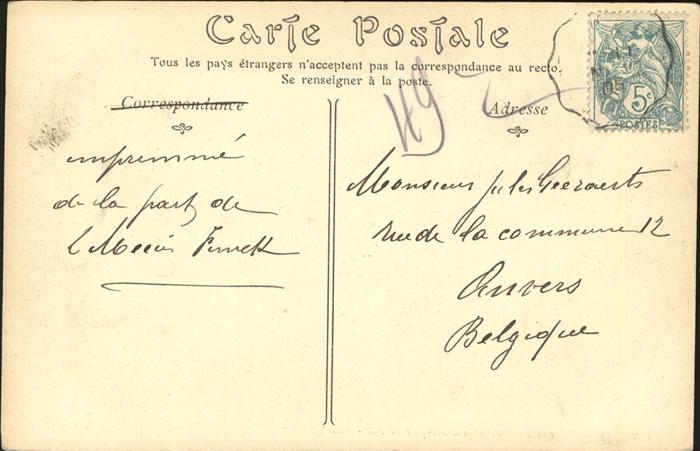 Carte Postale
Tous les pays étrangers n'acceptent pas la correspondance au recto.
Se renseigner à la poste.
Correspondance
imprimmé
de la part de
Adresse
49
Monsieur Jules Geeraerts
rue de la commune 12
Anvers
Belgique
5c
POSTES
05